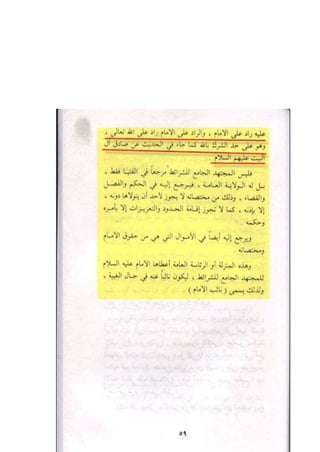 عليه راد على الامام ، والراد على الامام راد على الله تعالى ،
وهو على حد الشرك بالله كما جاء في الحديث عن صادق آل
البيت عليهم السلام .
فليس المجتهد الجامع للشرائط مرجعاً في الفتيا فقط ،
بل له الولاية العامة ، فيرجع إليه في الحكم والفصل
والقضاء ، وذلك من مختصاته لا يجوز لأحد أن يتولاها دونه ،
إلا بإذنه ، كما لا تجوز إقامة الحدود والتعزيرات إلا بأمره
وحكمه .
ويرجع إليه أيضاً في الأموال التي هي من حقوق الامام
ومختصاته
وهذه المنزلة أو الرئاسة العامة أعطاها الامام عليه السلام
للمجتهد الجامع للشرائط ، ليكون نائباً عنه في حال الغيبة ،
ولذلك يسمى ( نائب الامام ) .
٥٩